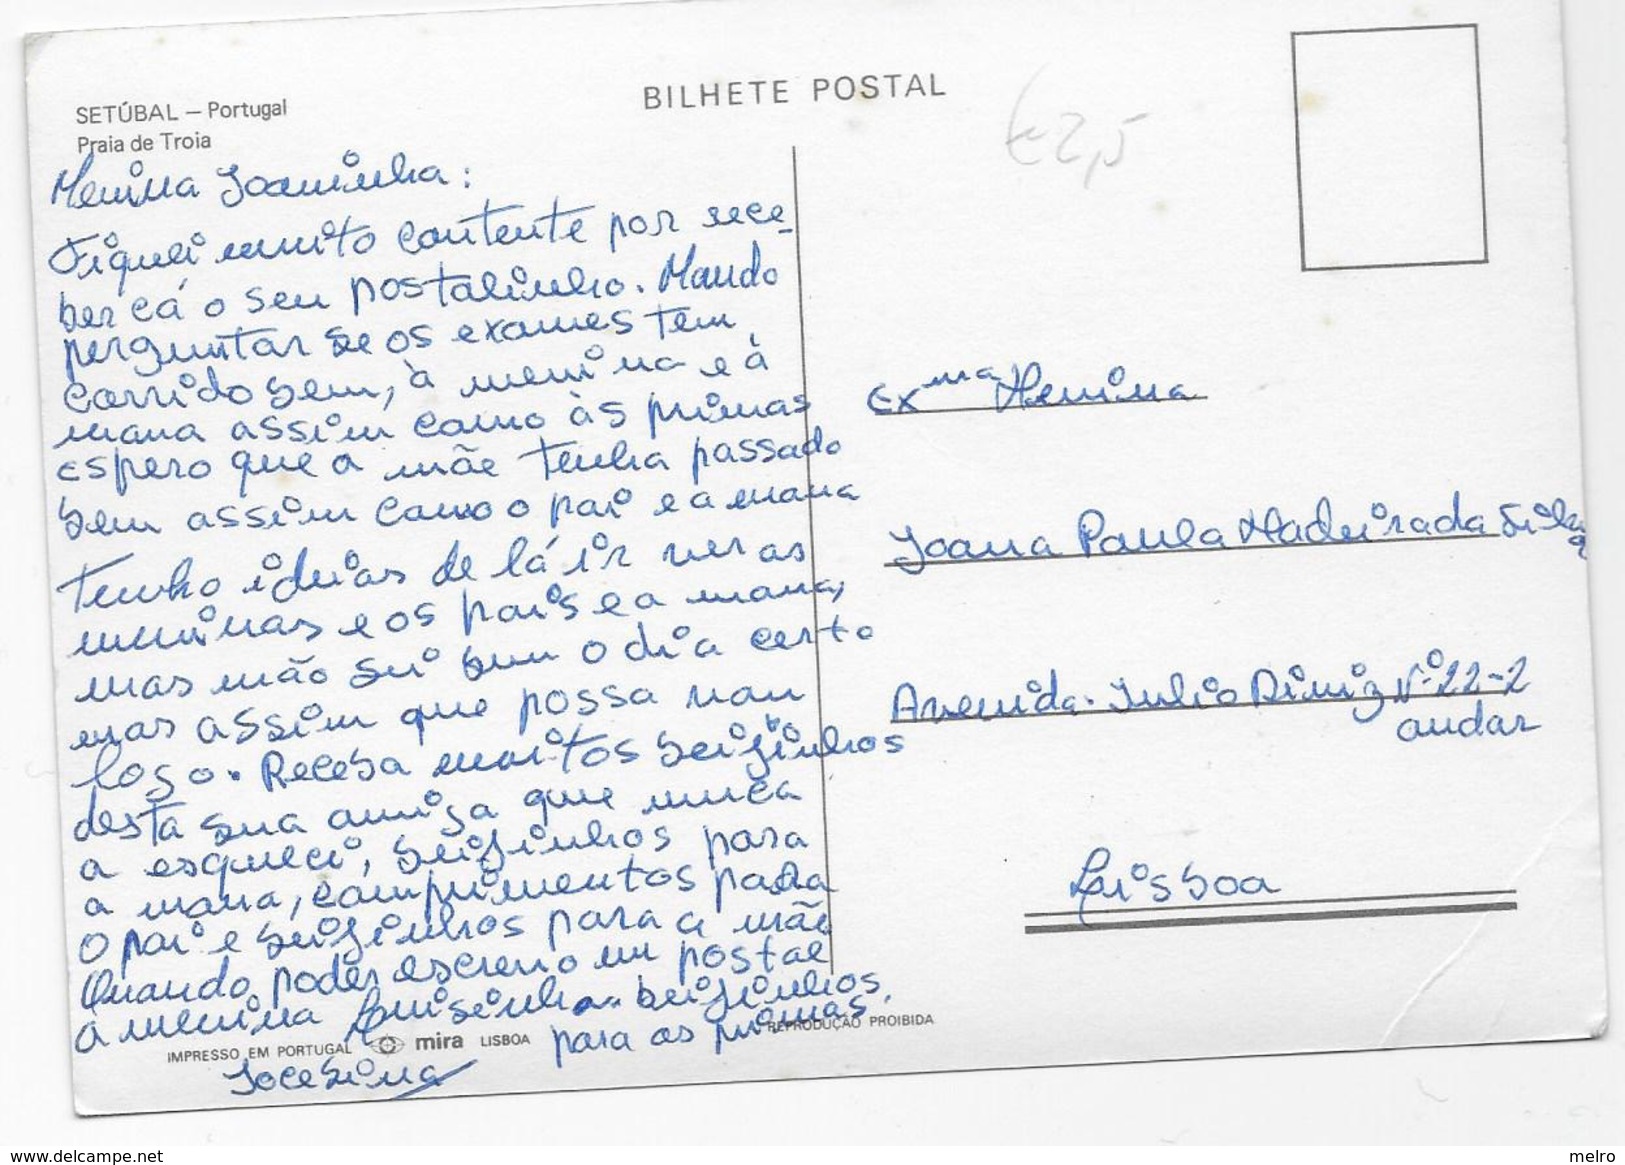 SETÚBAL – Portugal
Praia de Troia
BILHETE POSTAL
€ 2,5
Menina Joaninha:
Fiquei muito contente por rece-
ber cá o seu postalinho. Mando
perguntar se os exames tem
corrido bem, à menina e à
mana assim como às primas
espero que a mãe tenha passado
bem assim como o pai e a mana
Tenho ideias de lá ir ver as
meninas e os pais e a mana,
mas não sei bem o dia certo
mas assim que possa vou
logo. Receba muitos beijinhos
desta sua amiga que nunca
a esqueci, beijinhos para
a mana, comprimentos para
o pai e beijinhos para a mãe
Quando poder escrevo um postal
a menina Luisinha. beijinhos
para as primas.
IMPRESSO EM PORTUGAL mira LISBOA
REPRODUÇÃO PROIBIDA
Exma Menina
Joana Paula Madeira da Silva
Avenida. Julio Diniz Nº 22-2
andar
Lisboa
www.delcampe.net
melro